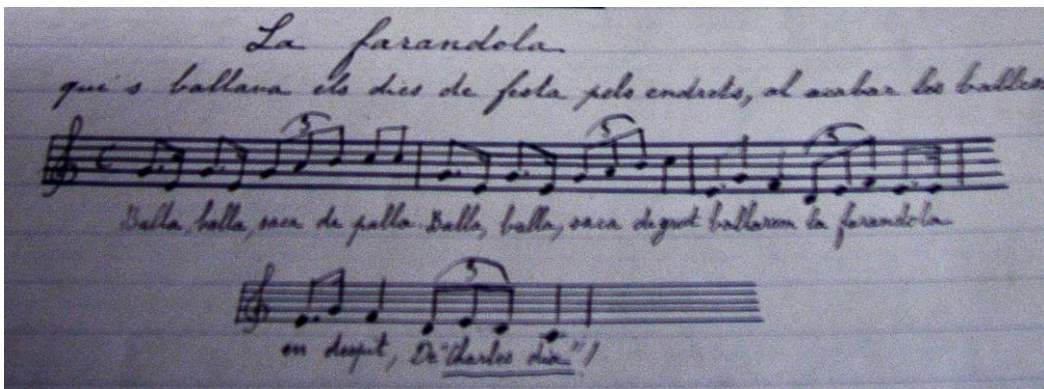 La farandola
qui s ballava els dies de festa pels endrets, al acabar les balles
3 3 3
Balla, balla, saca de palla. Balla, balla, saca de grot ballarem la farandola
3
en despit, De "Charles dix"!